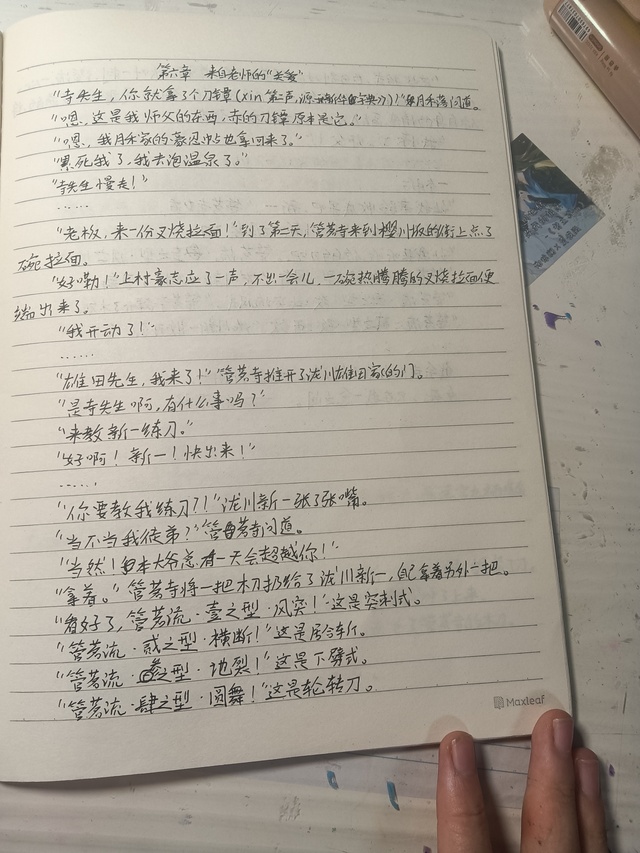 第六章 来自老师的“关爱”
“寺先生，你就拿了个刀镡（xin 第二声，源 字典分）”月禾落问道。
“嗯，这是我师父的东西，赤的刀镡原本是它。”
“嗯，我月禾家的 也拿回来了。”
“累死我了，我去泡温泉了。”
“寺先生慢走！”
……
“老板，来一份叉烧拉面！”到了第二天，管茗寺来到樱川坂的街上点了
碗拉面。
“好嘞！”上村豪志应了一声，不出一会儿，一碗热腾腾的叉烧拉面便
端出来了。
“我开动了！”
……
“雄田先生，我来了！”管茗寺推开了泷川雄田家的门。
“是寺先生啊，有什么事吗？”
“来教新一练刀。”
“好啊！新一！快出来！”
……
“你要教我练刀？！”泷川新一张了张嘴。
“当不当我徒弟？”管茗寺问道。
“当然！本大爷总有一天会超越你！”
“拿着。”管茗寺将一把木刀扔给了泷川新一，自己拿着另外一把。
“看好了，管茗流·壹之型·风突！”这是突刺式。
“管茗流·贰之型·横断！”这是居合斩。
“管茗流·叁之型·地裂！”这是下劈式。
“管茗流·肆之型·圆舞！”这是轮转刀。
Maxleaf